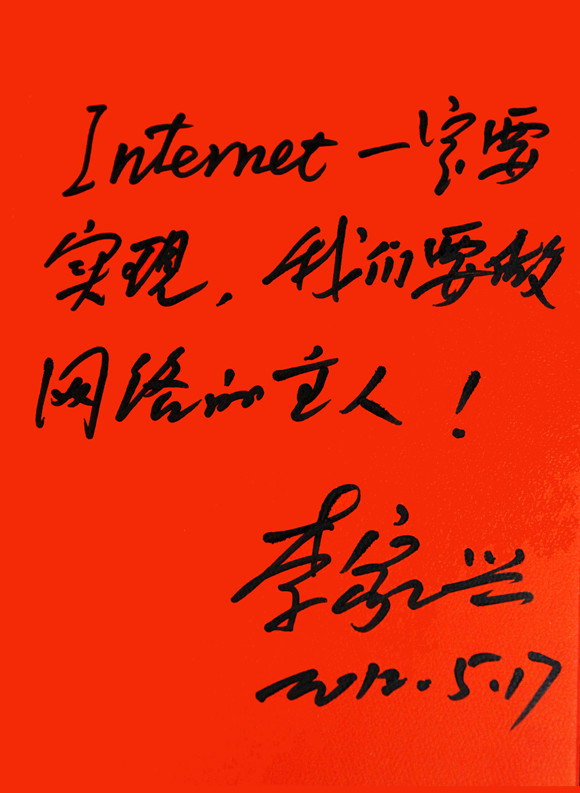 Internet 一定要
实现，我们要做
网络的主人！
李家兴
2012.5.17